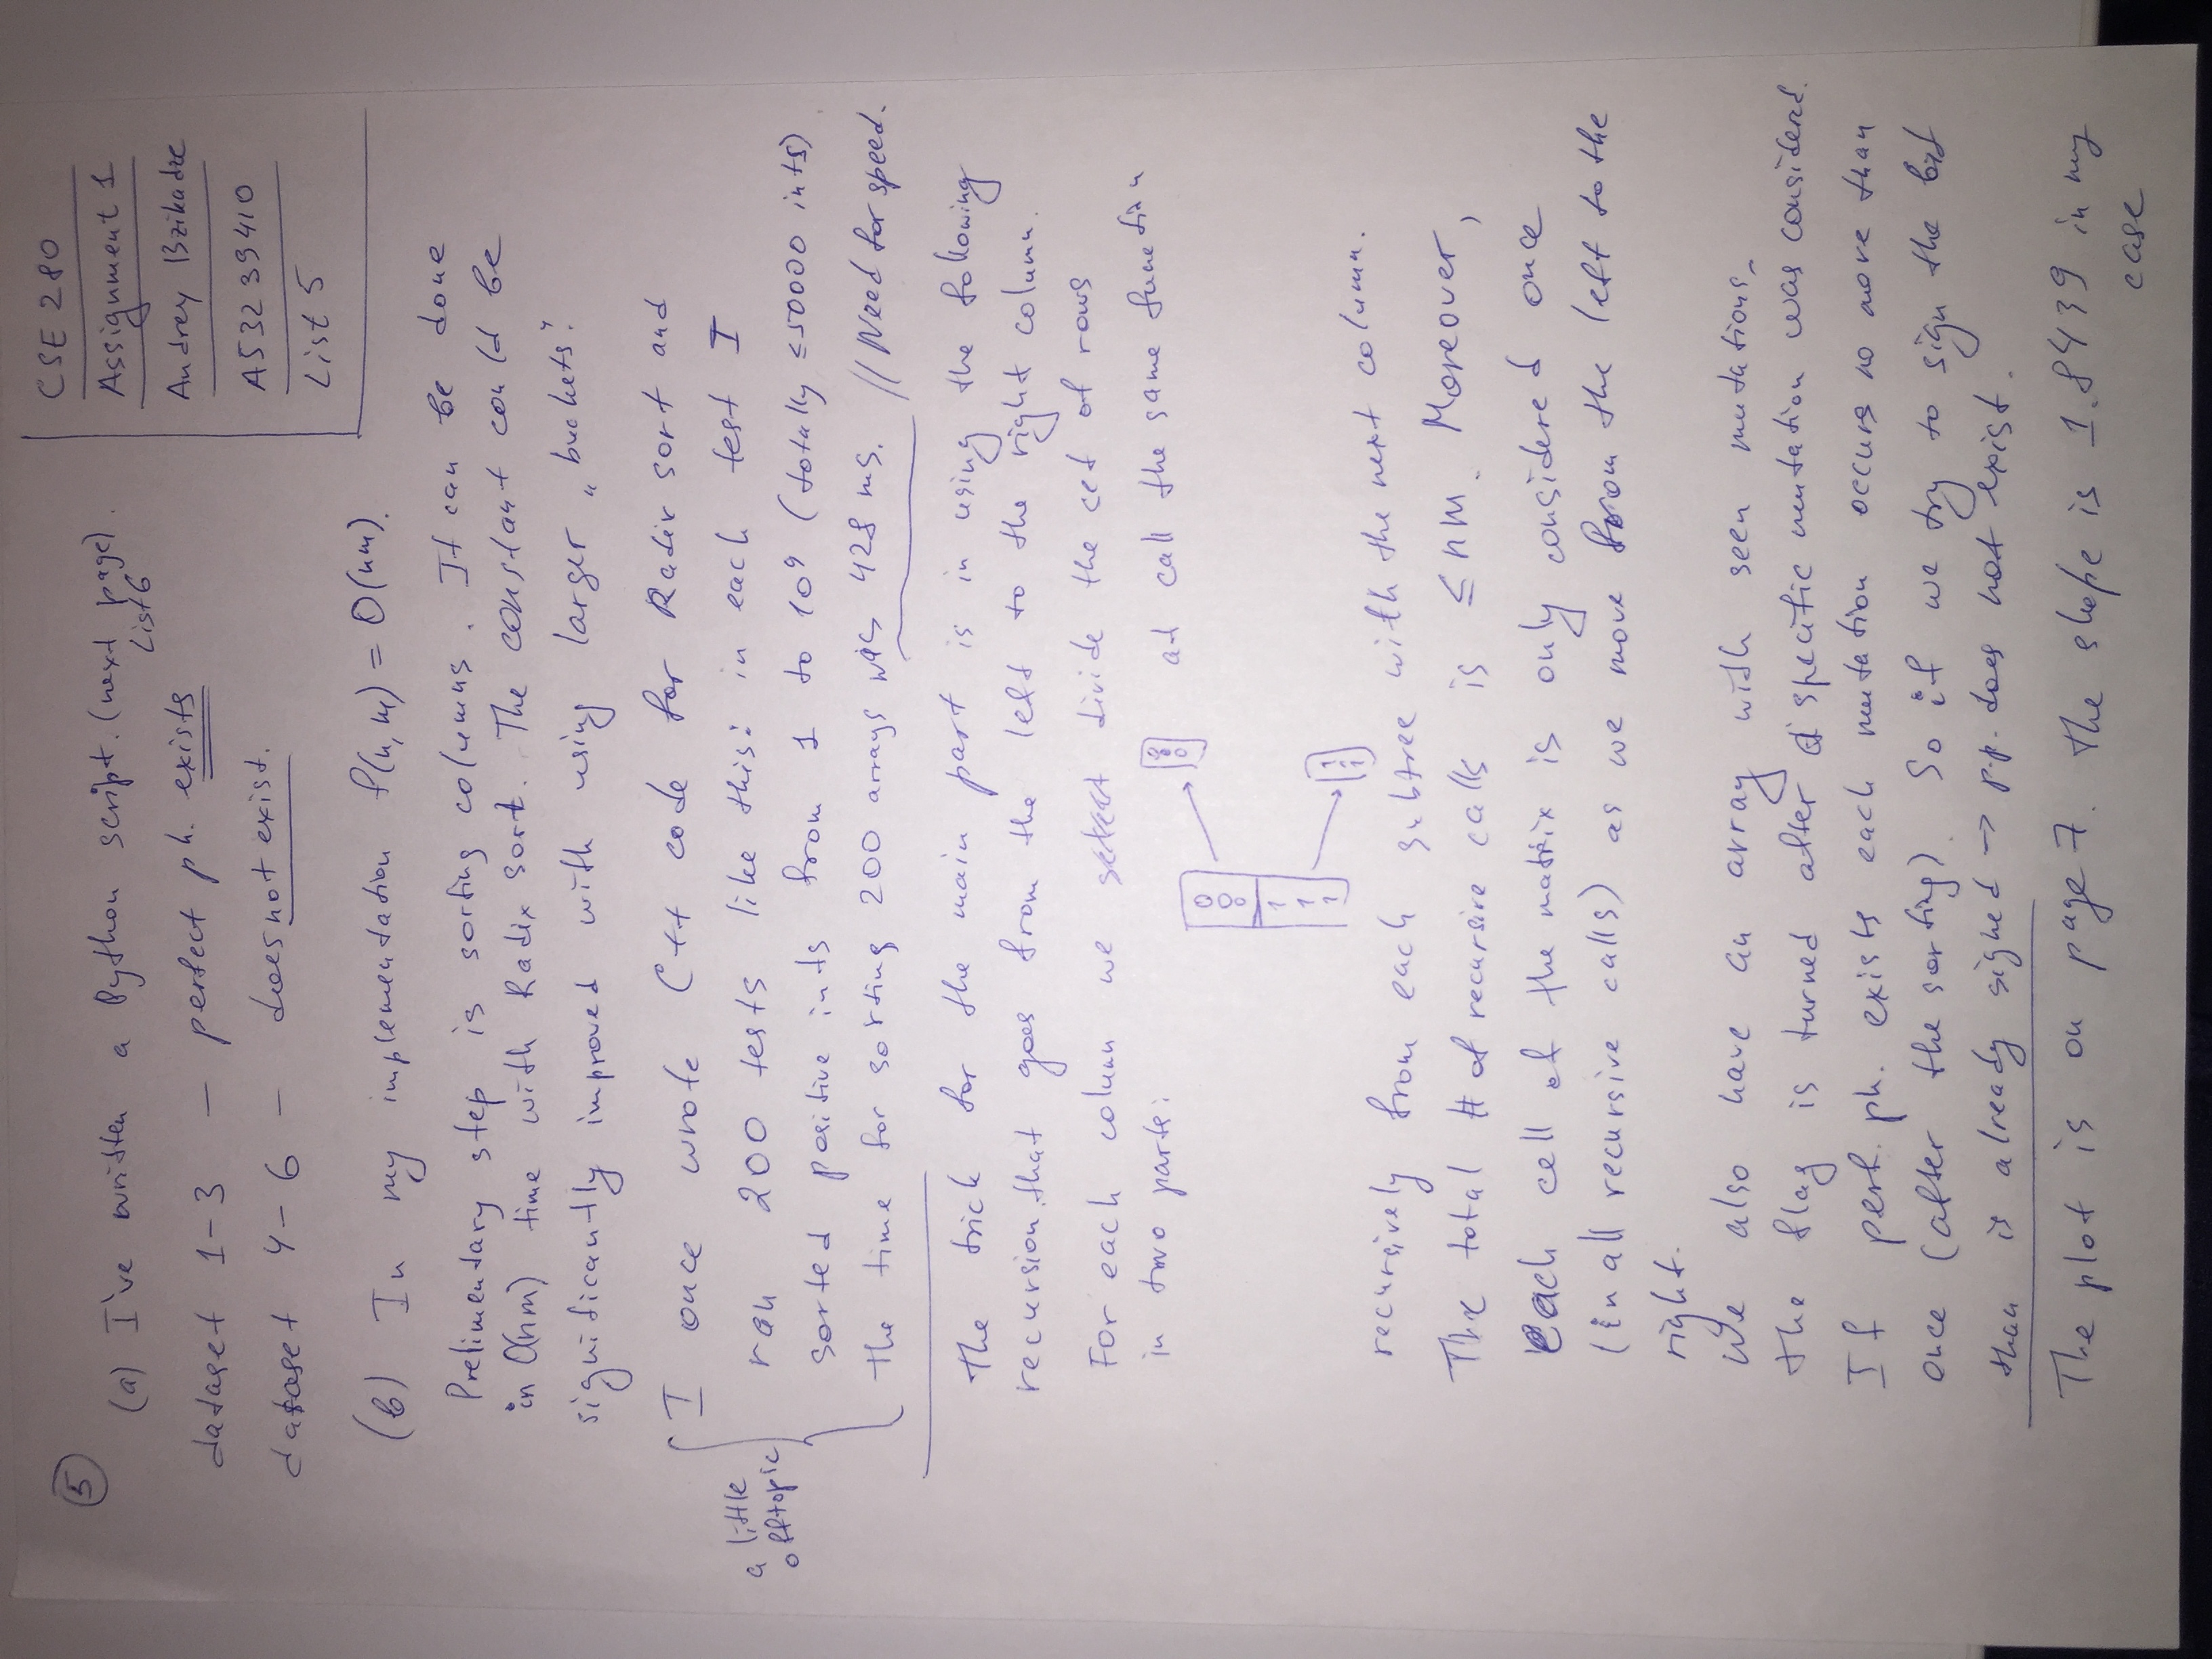 CSE 280
Assignment 1
Andrey Bzikadze
A53239410
List 5
5
(a) I've written a Python script. (next page).
List 6
dataset 1-3 — perfect ph. exists
dataset 4-6 — does not exist.
(b) In my implementation f(n,m) = O(nm).
Prelimendary step is sorting columns. It can be done
in O(nm) time with Radix sort. The constant could be
significantly improved with using larger „buckets".
a little
offtopic
I once wrote C++ code for Radix sort and
ran 200 tests like this: in each test I
sorted positive ints from 1 to 10⁹ (totally ≤50000 ints)
the time for sorting 200 arrays was 428 ms. // Need for speed.
The trick for the main part is in using the following
recursion that goes from the left to the right column.
For each column we divide the set of rows
in two parts: at call the same function
0 0 0
0
0
0
1
1
1
1
1
recursively from each subtree with the next column.
The total # of recursive calls is ≤ nm. Moreover,
each cell of the matrix is only considered once
(in all recursive calls) as we move from the left to the
right.
We also have an array with seen mutations.
the flag is turned after a specific mutation was considered.
If perf. ph. exists each mutation occurs no more than
once (after the sorting). So if we try to sign the bit
than is already signed → p.p. does not exist.
The plot is on page 7. the slope is 1.8439 in my
case